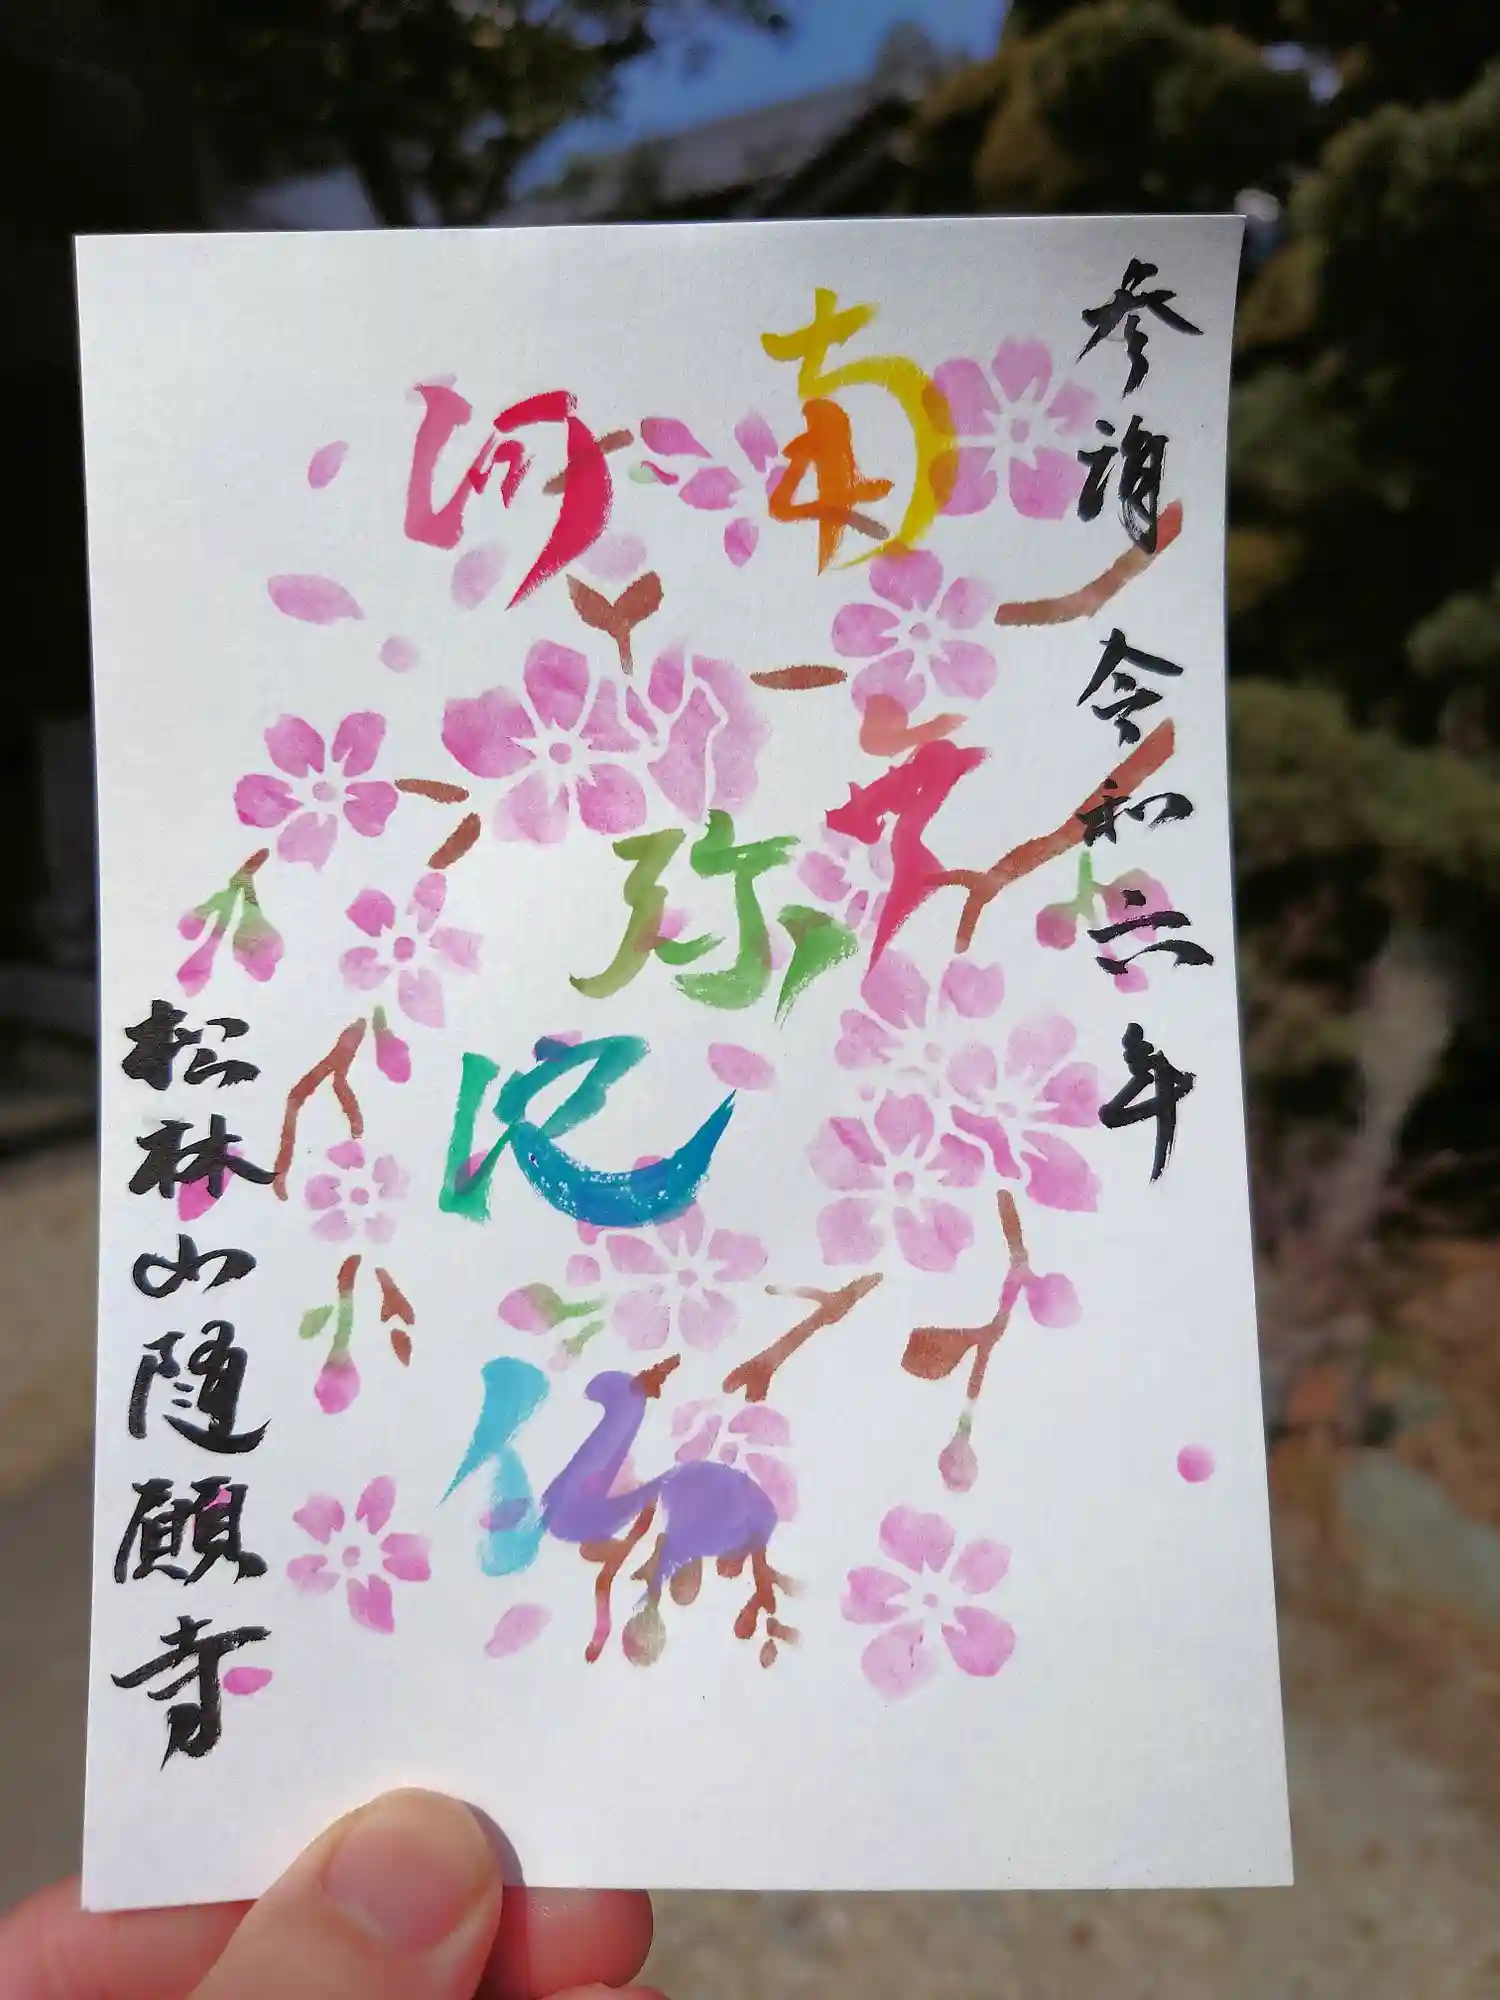 参詣 令和六年
南無
阿弥陀仏
松林山随願寺